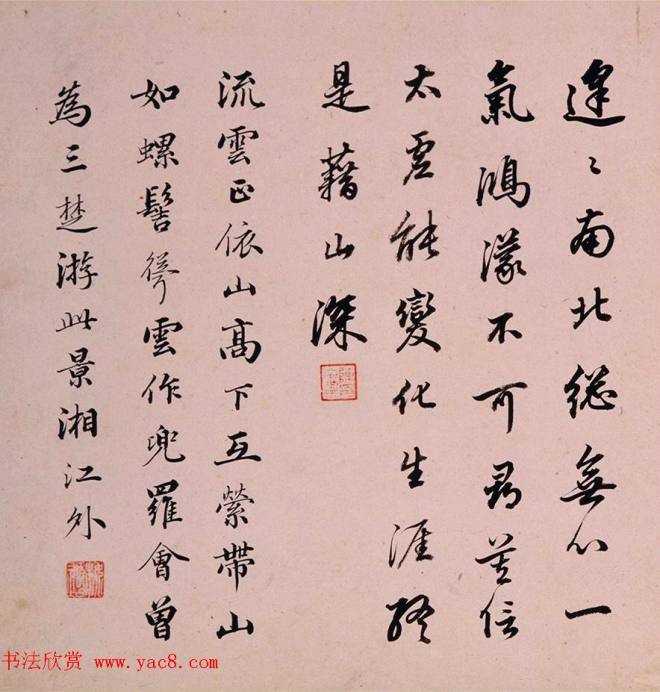 逢〻南北總無心一
氣鴻濛不可尋莫信
太虛能變化生涯終
是藉山深
流雲正依山高下互縈帶山
如螺髻雲作兜羅會曾
為三楚游此景湘江外
书法欣赏 www.yac8.com